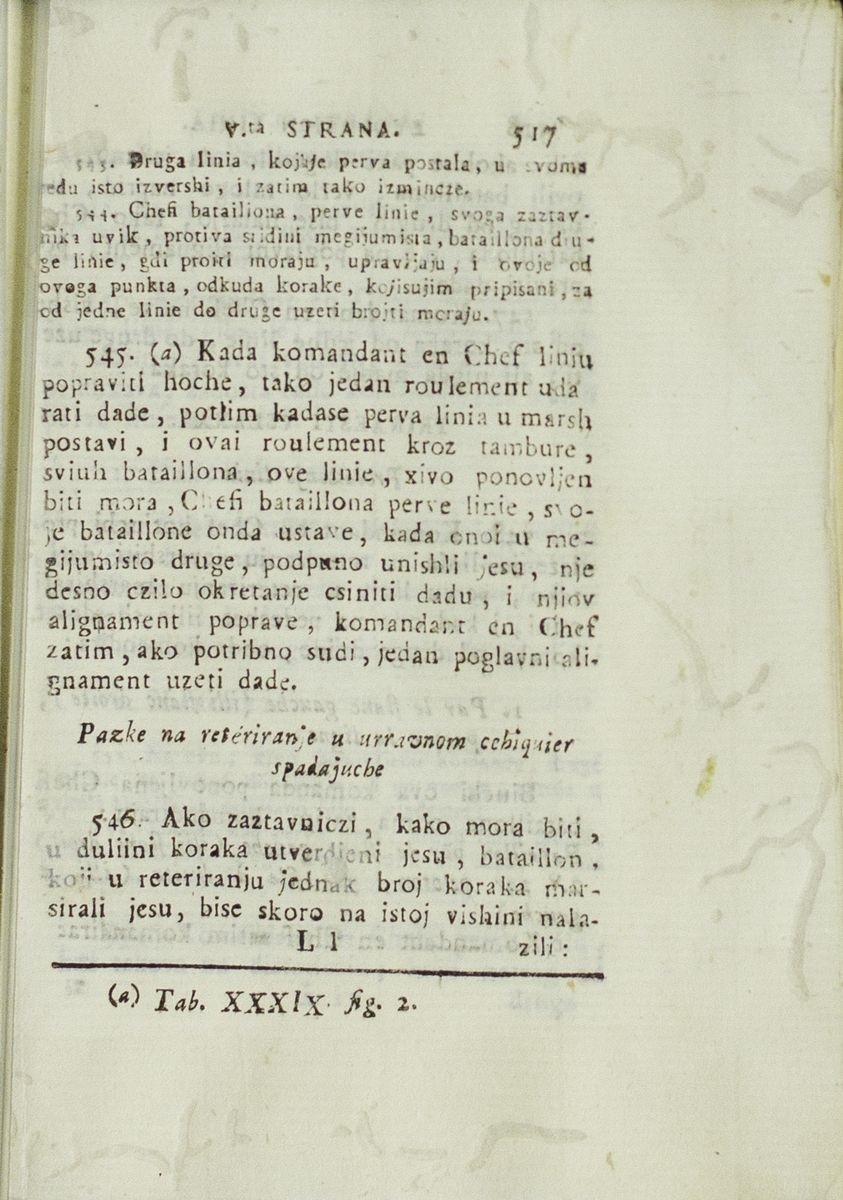 V.ta STRANA. 517
Druga linia, kojaje perva postala, u svomu
redu isto izvershi, i zatim tako izmincze.
544. Chefi batailiona, perve linie, svoga zaztav-
nika uvik, protiva sridini megijumista, bataillona dru-
ge linie, gdi proiti moraju, upravljaju, i ovoje od
ovoga punkta, odkuda korake, kojisujim pripisani, za
od jedne linie do druge uzeti brojti moraju.
545. (a) Kada komandant en Chef liniu
popraviti hoche, tako jedan roulement uda
rati dade, potlim kadase perva linia u marsh
postavi, i ovai roulement kroz tambure,
sviuh bataillona, ove linie, xivo ponovljen
biti mora, Chefi bataillona perve linie, svo-
je bataillone onda ustave, kada onoi u me-
gijumisto druge, podpuno unishli jesu, nje
desno czilo okretanje csiniti dadu, i njiov
alignament poprave, komandant en Chef
zatim, ako potribno sudi, jedan poglavni ali-
gnament uzeti dade.
Pazke na reteriranje u urravnom echiquier
spadajuche
546. Ako zaztavniczi, kako mora biti,
u duliini koraka utverdjeni jesu, bataillon,
koji u reteriranju jednak broj koraka mar-
sirali jesu, bise skoro na istoj vishini nala-
L l zili:
(a) Tab. XXXIX. fig. 2.